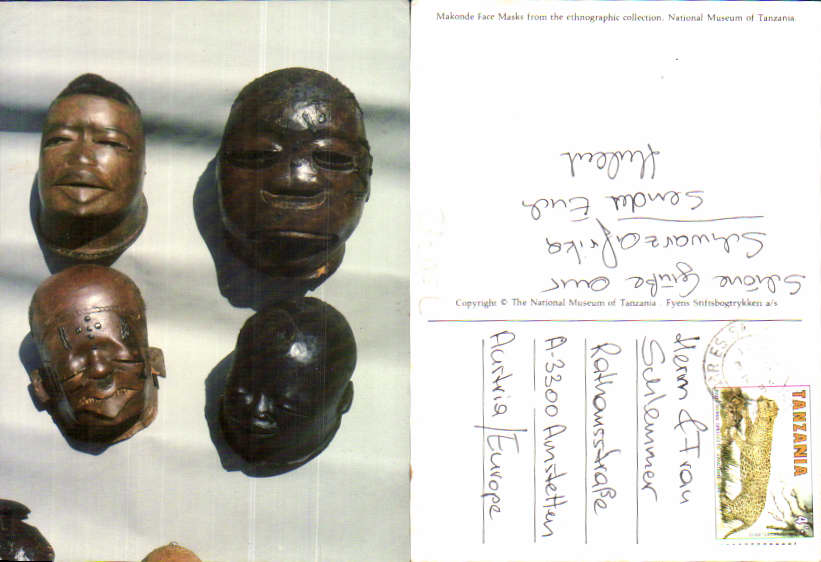 Makonde Face Masks from the ethnographic collection. National Museum of Tanzania.
Schöne Grüße aus
Schwarzafrika
Sendet Euch
Hubert
Copyright © The National Museum of Tanzania . Fyens Stiftsbogtrykkeri a/s
Herrn & Frau
Schlemmer
Rathausstraße
A-3300 Amstetten
Austria/Europe
TANZANIA